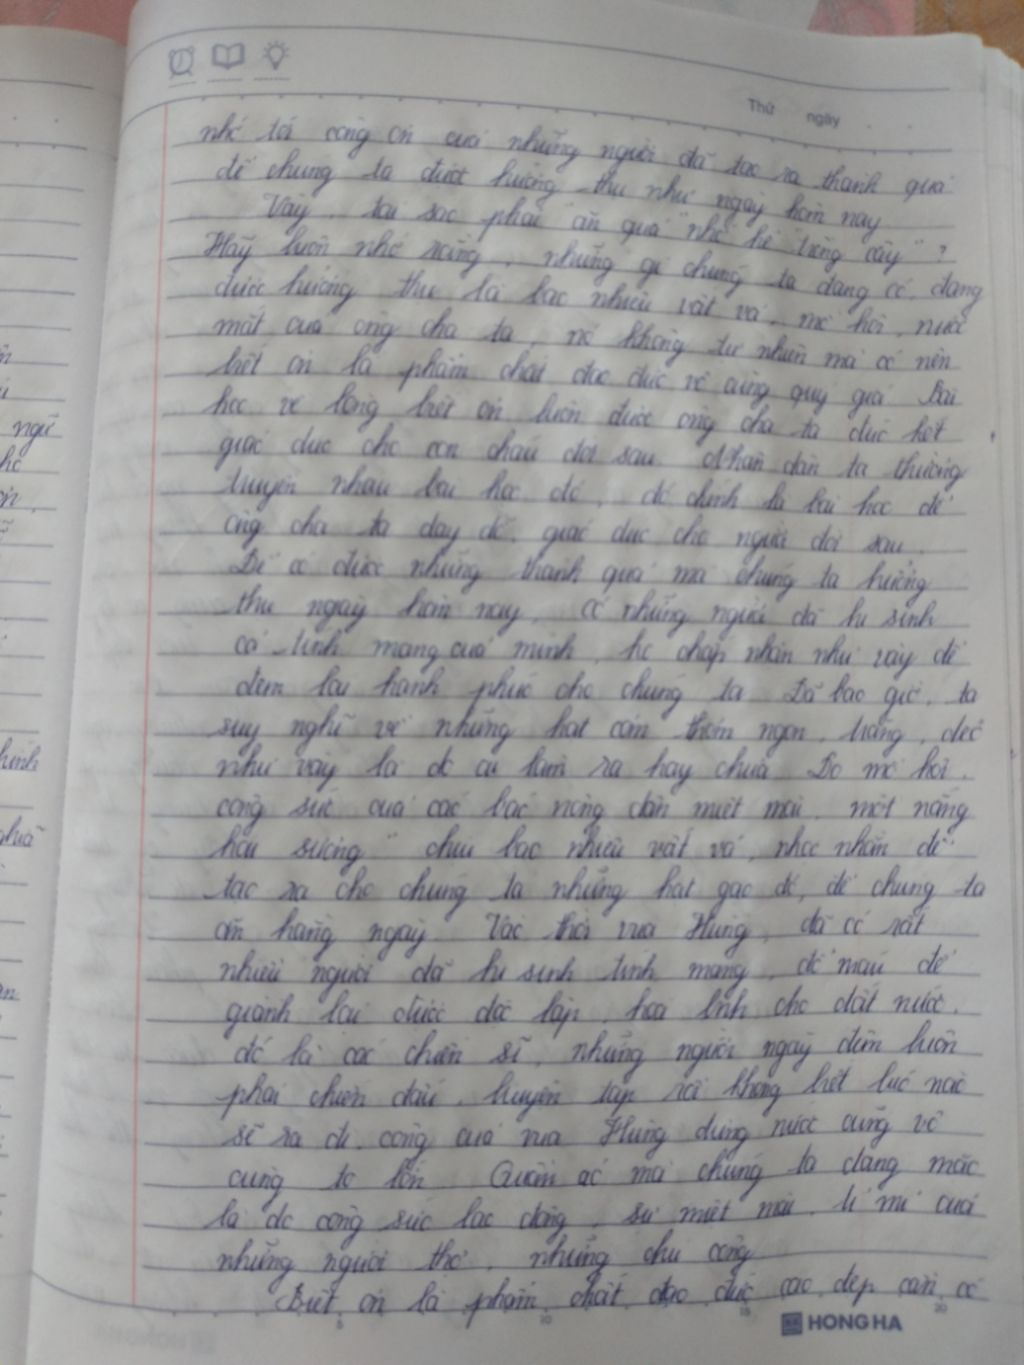 Thứ ngày
nhớ tới công ơn của những người đã tạo ra thành quả
để chúng ta được hưởng thụ như ngày hôm nay
Vậy, tại sao phải "ăn quả" nhớ kẻ "trồng cây"?
Hãy luôn nhớ rằng, những gì chúng ta đang có, đang
được hưởng thụ là bao nhiêu vất vả, mồ hôi, nước
mắt của ông cha ta, nó không tự nhiên mà có nên
biết ơn là phẩm chất đạo đức vô cùng quý giá. Bài
học về lòng biết ơn luôn được ông cha ta đúc kết
giáo dục cho con cháu đời sau. Nhân dân ta thường
truyền nhau bài học đó, đó chính là bài học để
ông cha ta dạy dỗ, giáo dục cho người đời sau.
Để có được những thành quả mà chúng ta hưởng
thụ ngày hôm nay, có những người đã hi sinh
cả tính mạng của mình, họ chấp nhận như vậy để
đem lại hạnh phúc cho chúng ta. Đã bao giờ, ta
suy nghĩ về những hạt cơm thơm ngon, trắng, dẻo
như vậy là do ai làm ra hay chưa. Do mồ hôi,
công sức của các bác nông dân miệt mài, một nắng
hai sương" chịu bao nhiêu vất vả, nhọc nhằn để
tạo ra cho chúng ta những hạt gạo đó, để chúng ta
ăn hằng ngày. Vào thời vua Hùng, đã có rất
nhiều người đã hi sinh tính mạng, đổ máu để
giành lại được độc lập, hòa bình cho đất nước,
đó là các chiến sĩ, những người ngày đêm luôn
phải chiến đấu, luyện tập rồi không biết lúc nào
sẽ ra đi, công của vua Hùng dựng nước cũng vô
cùng to lớn. Quần áo mà chúng ta đang mặc
là do công sức lao động, sự miệt mài, tỉ mỉ của
những người thợ, những chú công
Biết ơn là phẩm chất đạo đức cao đẹp cần có
5 10 15 20
HONG HA
ngữ
hình